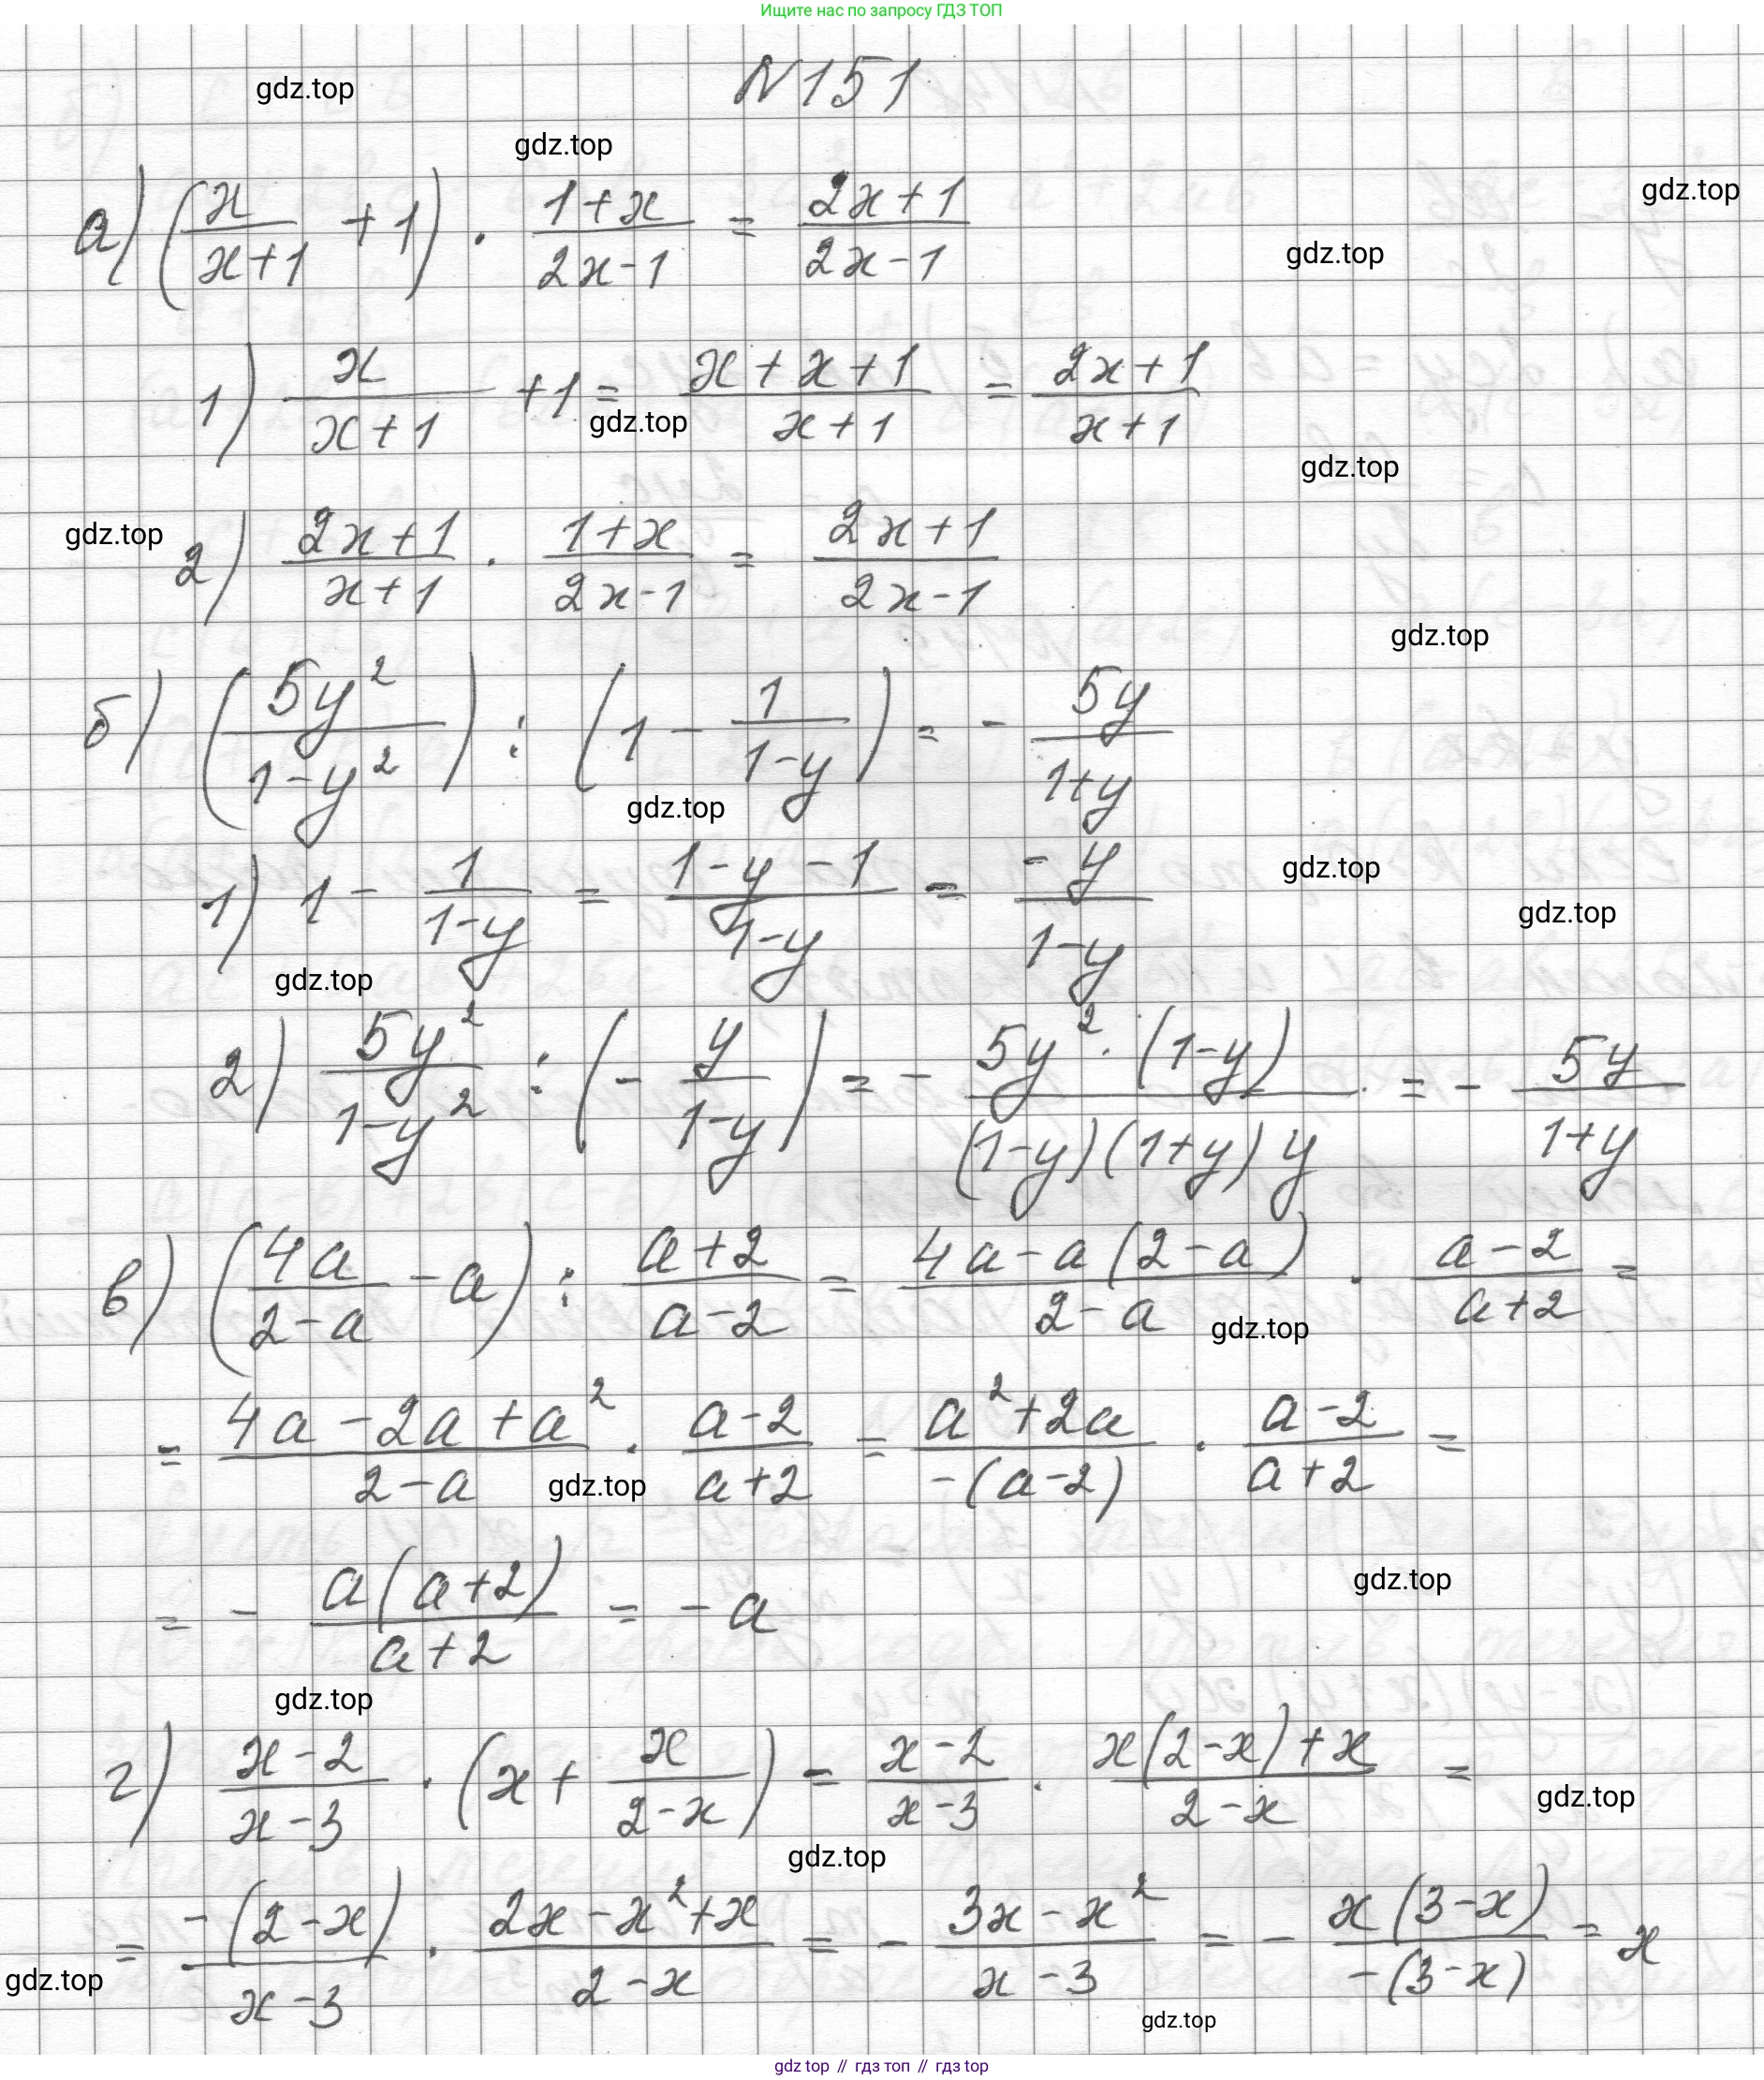 Ищите нас по запросу ГДЗ ТОП
N151
gdz.top
gdz.top
gdz.top
а) (x/(x+1) + 1) · (1+x)/(2x-1) = (2x+1)/(2x-1)
gdz.top
1) x/(x+1) + 1 = (x+x+1)/(x+1) = (2x+1)/(x+1)
gdz.top
gdz.top
gdz.top
2) (2x+1)/(x+1) · (1+x)/(2x-1) = (2x+1)/(2x-1)
gdz.top
б) (5y²/(1-y²)) : (1 - 1/(1-y)) = - 5y/(1+y)
gdz.top
1) 1 - 1/(1-y) = (1-y-1)/(1-y) = -y/(1-y)
gdz.top
gdz.top
gdz.top
2) 5y²/(1-y²) : (- y/(1-y)) = - 5y²·(1-y)/((1-y)(1+y)y) = - 5y/(1+y)
в) (4a/(2-a) - a) : (a+2)/(a-2) = (4a-a(2-a))/(2-a) · (a-2)/(a+2) =
gdz.top
= (4a-2a+a²)/(2-a) · (a-2)/(a+2) = (a²+2a)/(-(a-2)) · (a-2)/(a+2) =
gdz.top
gdz.top
= - a(a+2)/(a+2) = -a
gdz.top
г) (x-2)/(x-3) · (x + x/(2-x)) = (x-2)/(x-3) · (x(2-x)+x)/(2-x) =
gdz.top
gdz.top
= -(2-x)/(x-3) · (2x-x²+x)/(2-x) = - (3x-x²)/(x-3) = - x(3-x)/(-(3-x)) = x
gdz.top
gdz.top
gdz top // гдз топ // гдз top